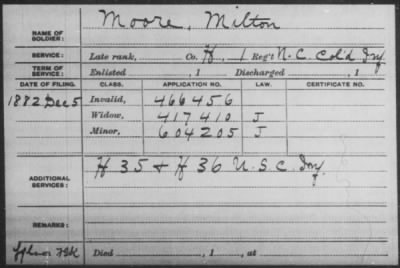 Moore, Milton
NAME OF SOLDIER:
SERVICE: Late rank, Co. H, 1 Reg't N. C. Col'd Inf.
TERM OF SERVICE: Enlisted , 1 Discharged , 1
DATE OF FILING. CLASS. APPLICATION NO. LAW. CERTIFICATE NO.
1882 Dec 5 Invalid, 466456
Widow, 417410 J
Minor, 604205 J
ADDITIONAL SERVICES: H 35 & H 36 U.S.C. Inf.
REMARKS:
Died , 1 , at